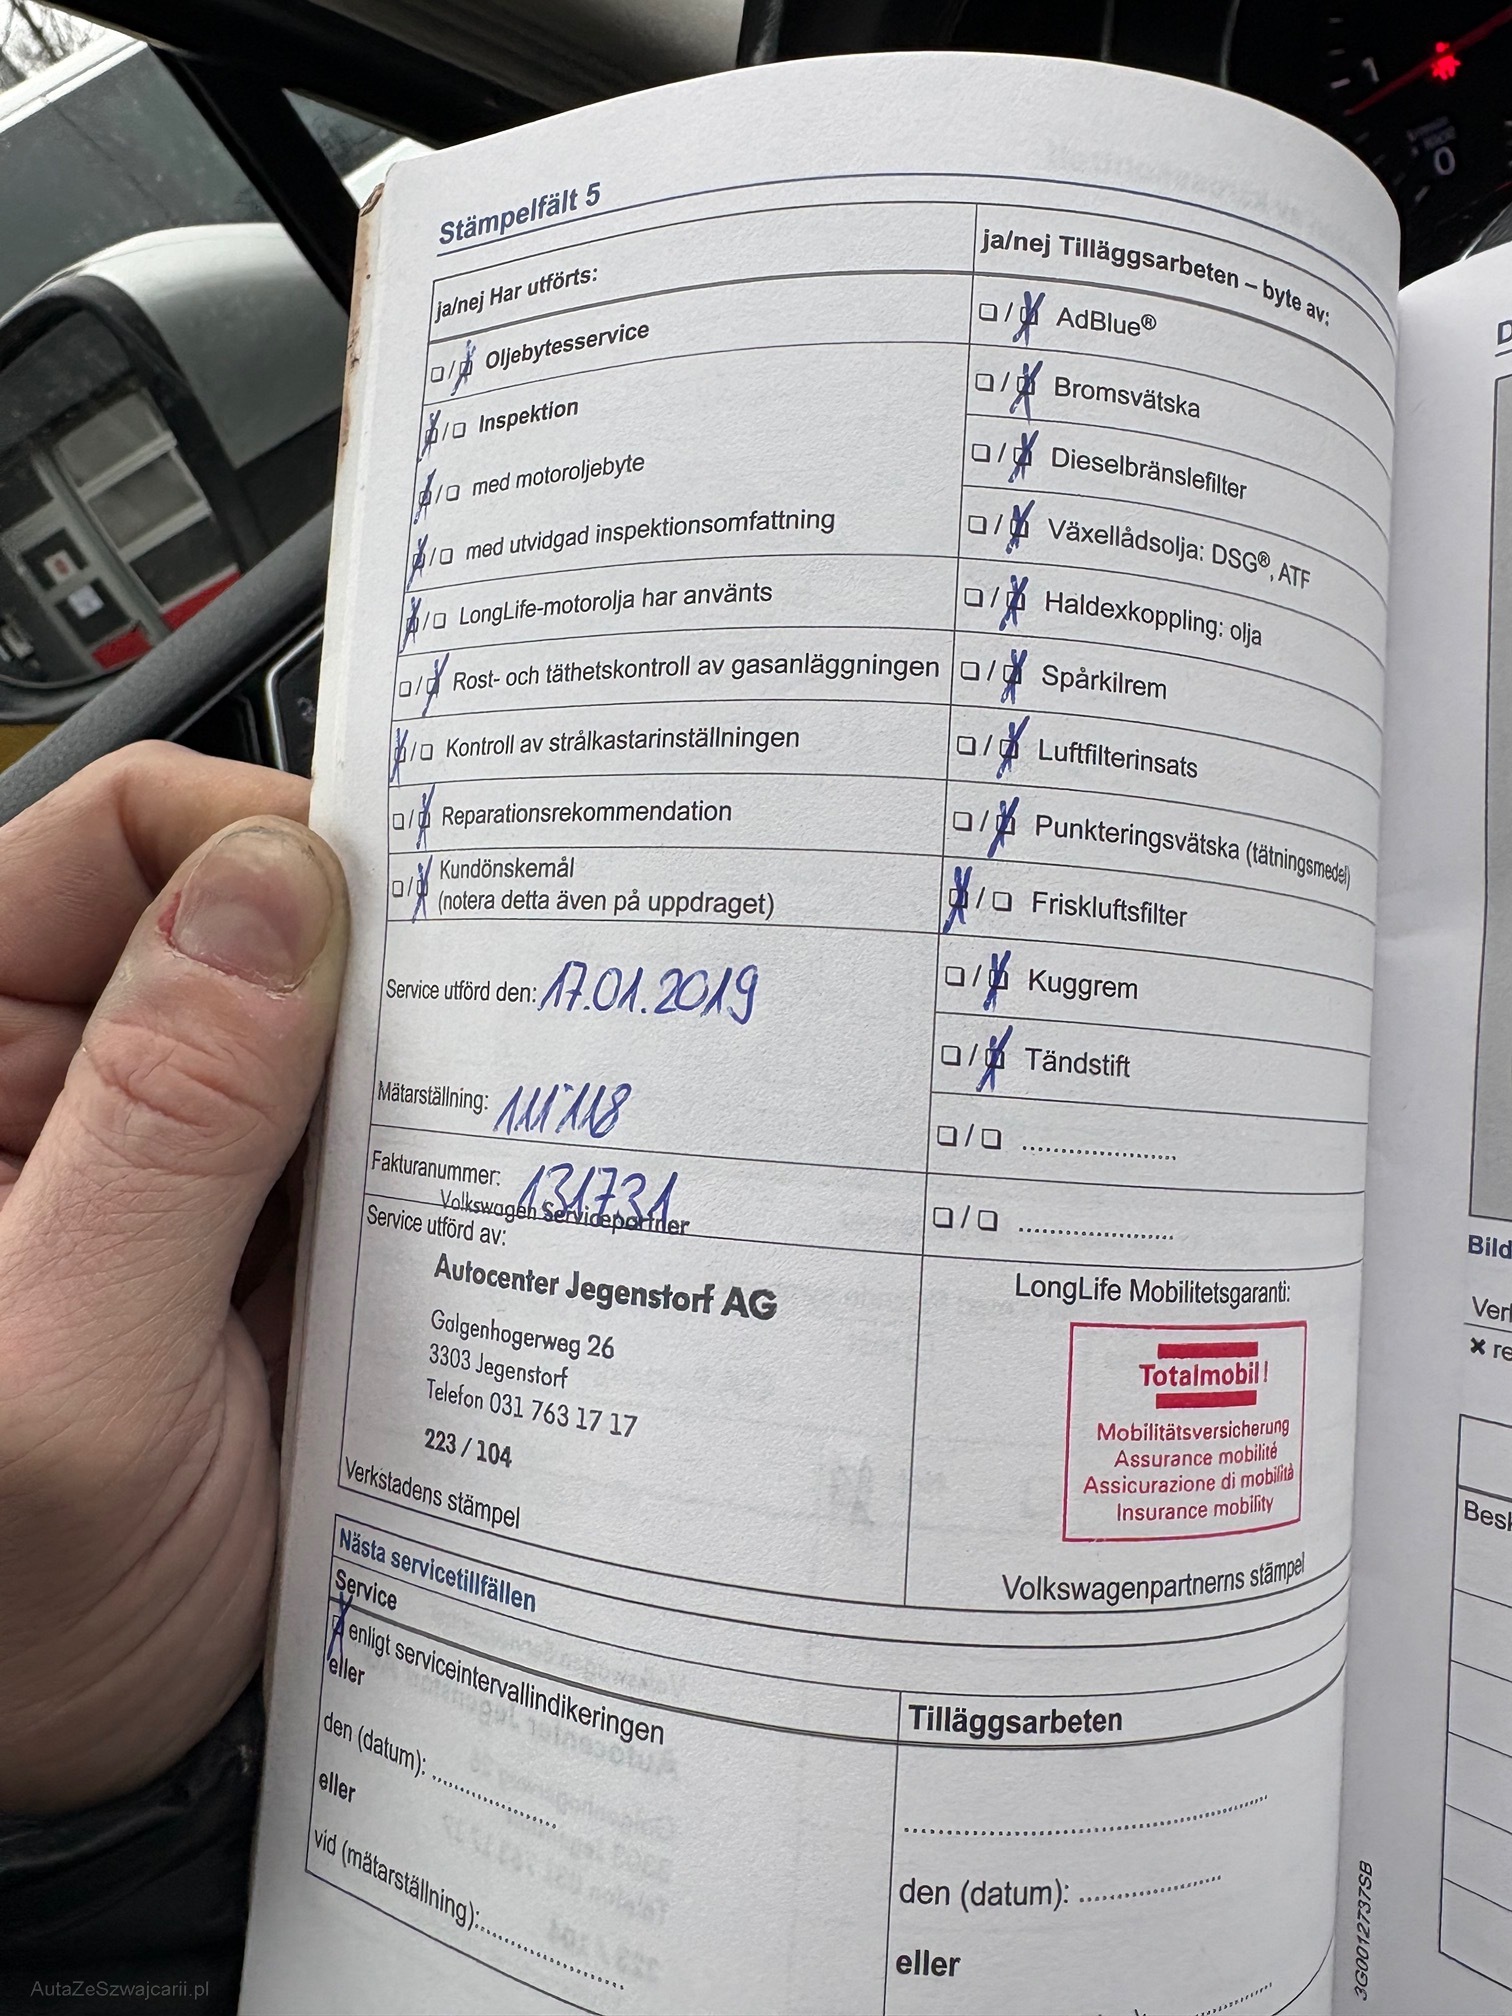 Stämpelfält 5
ja/nej Har utförts:
Oljebytesservice
Inspektion
med motoroljebyte
med utvidgad inspektionsomfattning
LongLife-motorolja har använts
Rost- och täthetskontroll av gasanläggningen
Kontroll av strålkastarinställningen
Reparationsrekommendation
Kundönskemål
(notera detta även på uppdraget)
Service utförd den: 17.01.2019
Mätarställning: 111'118
Fakturanummer: 131731
Volkswagen Servicepartner
Service utförd av:
Autocenter Jegenstorf AG
Galgenhogerweg 26
3303 Jegenstorf
Telefon 031 763 17 17
223 / 104
Verkstadens stämpel
ja/nej Tilläggsarbeten – byte av:
AdBlue®
Bromsvätska
Dieselbränslefilter
Växellådsolja: DSG®, ATF
Haldexkoppling: olja
Spårkilrem
Luftfilterinsats
Punkteringsvätska (tätningsmedel)
Friskluftsfilter
Kuggrem
Tändstift
LongLife Mobilitetsgaranti:
Totalmobil!
Mobilitätsversicherung
Assurance mobilité
Assicurazione di mobilità
Insurance mobility
Volkswagenpartnerns stämpel
Nästa servicetillfällen
Service
enligt serviceintervallindikeringen
eller
den (datum):
eller
vid (mätarställning):
Tilläggsarbeten
den (datum):
eller
3G0012737SB
Bild
1
0
AutaZeSzwajcarii.pl